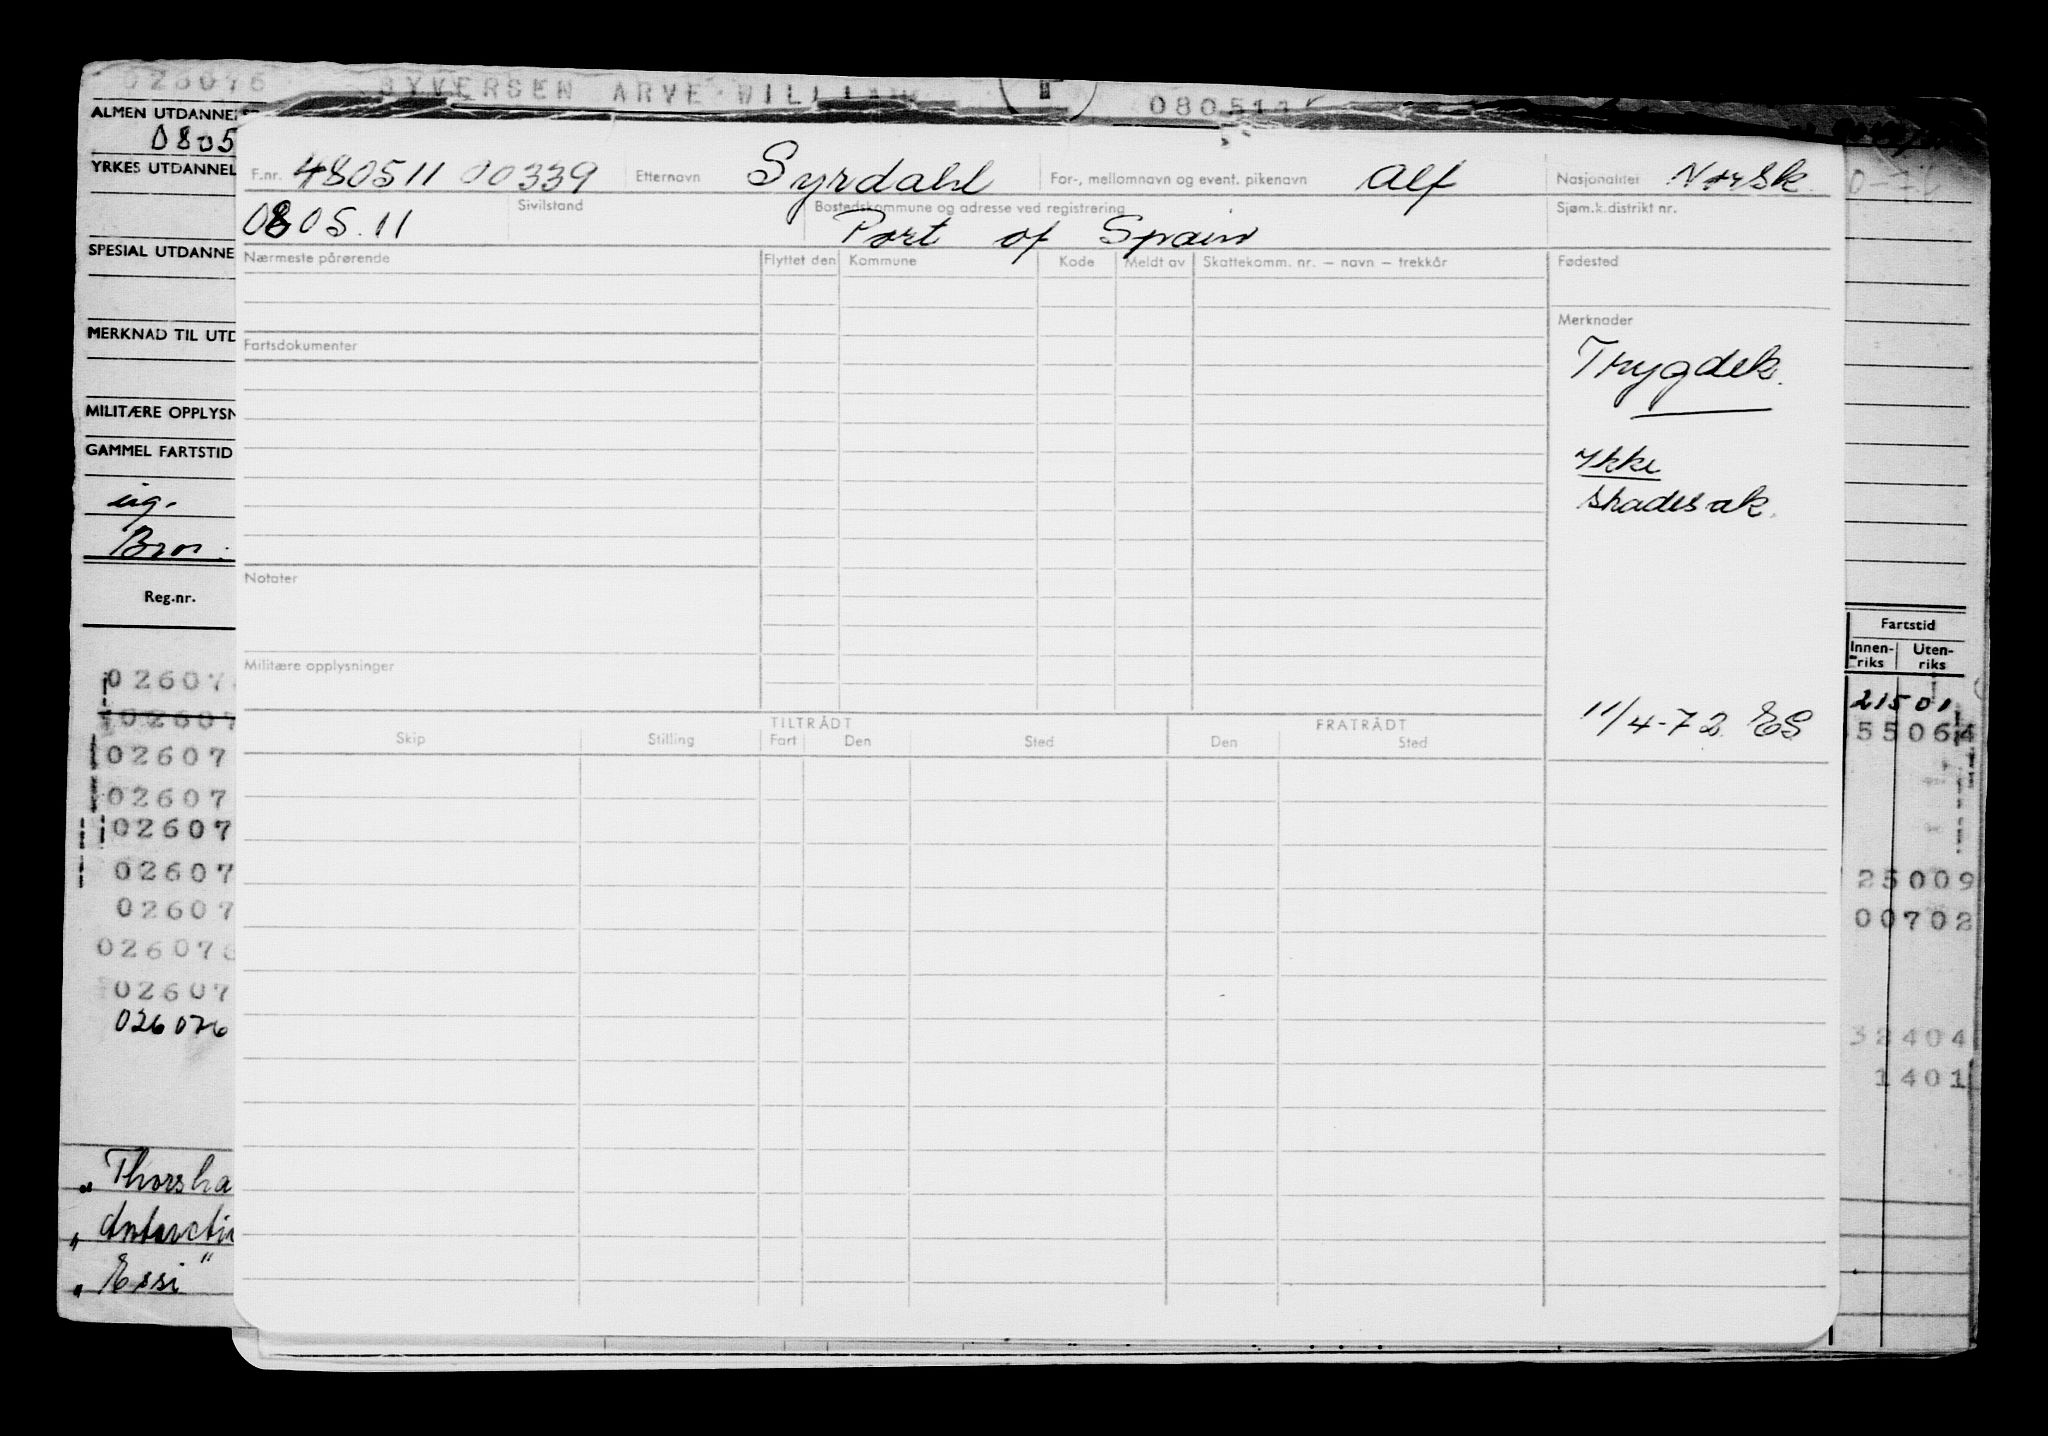 026076 SYVERSEN ARVE WILLIAM 080511
ALMEN UTDANNEL
0805
YRKES UTDANNEL
SPESIAL UTDANNE
MERKNAD TIL UTD
MILITÆRE OPPLYSN
GAMMEL FARTSTID
Reg.nr.
02607
02607
02607
02607
02607
02607
02607
026076
02607
026076
„Thorsha
„Antarctic
„Essi"
F.nr. 480511 00339 Etternavn Syrdahl For-, mellomnavn og event. pikenavn Alf Nasjonalitet Norsk
080511 Sivilstand Bostedskommune og adresse ved registrering Port of Spain Sjøm.k.distrikt nr.
Nærmeste pårørende Flyttet den Kommune Kode Meldt av Skattekomm. nr. — navn — trekkår Fødested
Merknader
Fartsdokumenter
Trygdek.
Ikke
skadesak.
Notater
Militære opplysninger
11/4-72 ES
TILTRÅDT FRATRÅDT
Skip Stilling Fart Den Sted Den Sted
Fartstid
Innen-riks Uten-riks
21501
55064
25009
00702
32404
1401